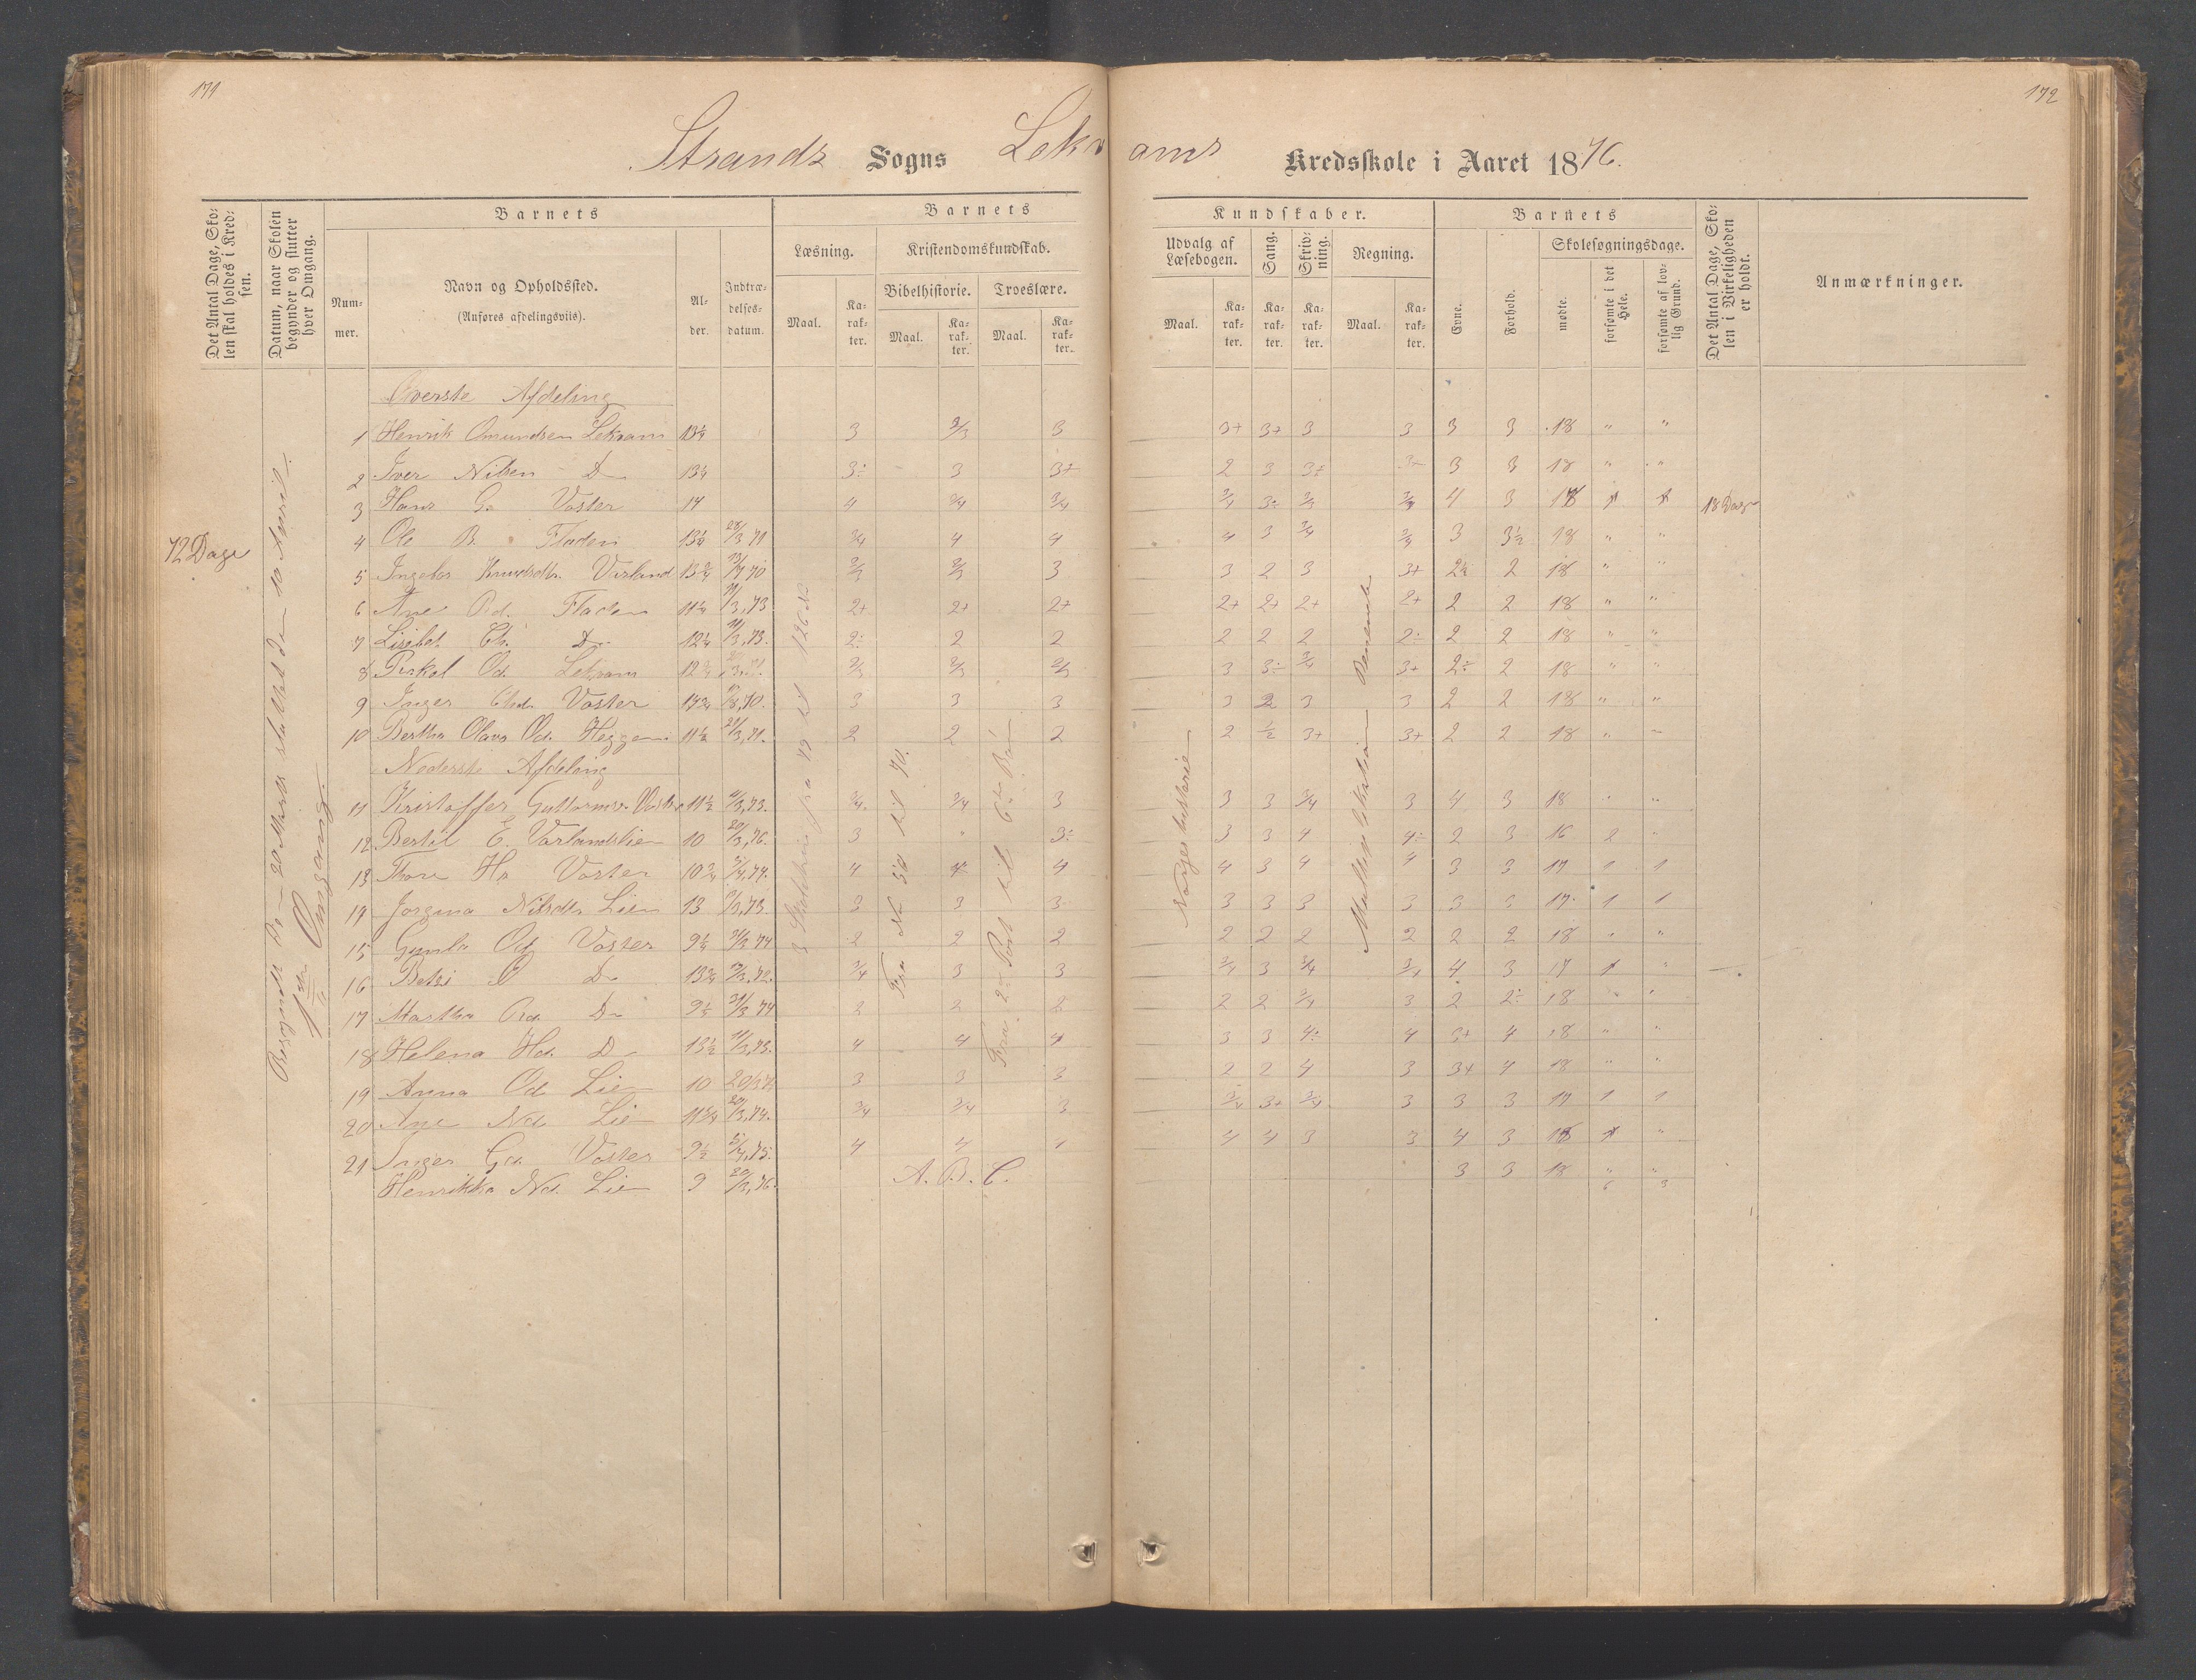 171
172
Strands Sogns Lekvams Kredsskole i Aaret 1876.
Det Antal Dage, Skolen skal holdes i Kredsen.
Datum, naar Skolen begynder og slutter hver Omgang.
Barnets
Nummer.
Navn og Opholdssted.
(Anføres afdelingsviis).
Alder.
Indtrædelsesdatum.
Barnets
Læsning.
Kristendomskundskab.
Bibelhistorie.
Troeslære.
Maal.
Karakter.
Maal.
Karakter.
Maal.
Karakter.
Kundskaber.
Udvalg af Læsebogen.
Sang.
Skrivning.
Regning.
Maal.
Karakter.
Karakter.
Karakter.
Maal.
Karakter.
Barnets
Evne.
Forhold.
Skolesøgningsdage.
mødte.
forsømte i det Hele.
forsømte af lovlig Grund.
Det Antal Dage, Skolen i Virkeligheden er holdt.
Anmærkninger.
72 Dage
10 April
1ste Omgang.
Øverste Afdeling
1 Henrik Omundsen Lekvam 13¼ 3 2/3 3 3+ 3+ 3 3 3 3 18 " "
2 Iver Nilsen Do 13¼ 3÷ 3 3+ 2 3 3+ 3 3 18 " "
3 Hans G. Voster 14 4 3/4 3/4 3/4 3÷ 4 3 18 Dage
4 Ole B. Fladen 13½ 28/3 71 3/4 4 4 4 3 3/4 3/4 3 3½ 18 " "
5 Ingebor Knudsdtr. Varland 13¾ 70 2/3 2/3 3 3 2 3 3+ 2½ 2 18 " "
6 Ane Fladen 11¼ 73 2+ 2+ 2+ 2+ 2+ 2+ 2+ 2 2 18 " "
7 Lisebet Do 12¼ 73. 2÷ 2 2 2 2 2 2÷ 2 2 18 " "
8 Od. Lekvam 12¾ 2/3 2/3 2/3 3 3÷ 3/4 3+ 2÷ 2 18 " "
9 Inger Voster 70. 3 3 3 3 2 3 3 2 2 18 " "
10 Bertha Olava Od. Heggen. 11½ 20/3, 71. 2 2 2 2 ½ 3+ 3+ 2 2 18 "
Nederste Afdeling
11 Kristoffer Guttormsen 11½ 73. 3/4 3/4 3 3 3 3/4 3 4 3 18 " "
12 Bertil E. Varlandslien 10 20/3, 76. 3 " 3÷ 3 3 4 4÷ 2 3 16 2 "
13 Thore Hs Voster 10¾ 5/4, 74. 4 4 4 4 3 4 4 3 3 17 1 1
14 Jorgina Nilsdtr Lien 13 73. 3 3 3 3 3 3 3 3 3 17 1 1
15 Gunla Od. Voster 9¼ 74 2 2 2 2 2 2 2 2 2 18 " "
16 Betsi O Do 13¾ 72. 3/4 3 3 3/4 3 3/4 3/4 4 3 17 1 "
17 Martha Do 9½ 74 2 2 2 2 2 3/4 3 2 2÷ 18 " "
18 Helena Hd. Do 13½ 73. 4 4 4 3 3 4÷ 4 3+ 4 18 " "
19 Anna Od Lien 10 20/3 3 3 3 2 2 4 3 3+ 4 18 " "
20 Ane Nd Lien 11¾ 20/3, 74. 3/4 3/4 3 3/4 3+ 3/4 3 3 3 17 1 1
21 Inger Gd. Voster 9½ 5/4, 75. 4 4 4 4 3 3 4 3 "
Henrikka Nd. Lien 9 20/3, 76. A. B. C. 3 3 18 " "
6 3
Fra No 50 til 70.
Fra 2den Part til 6te
Norges historie